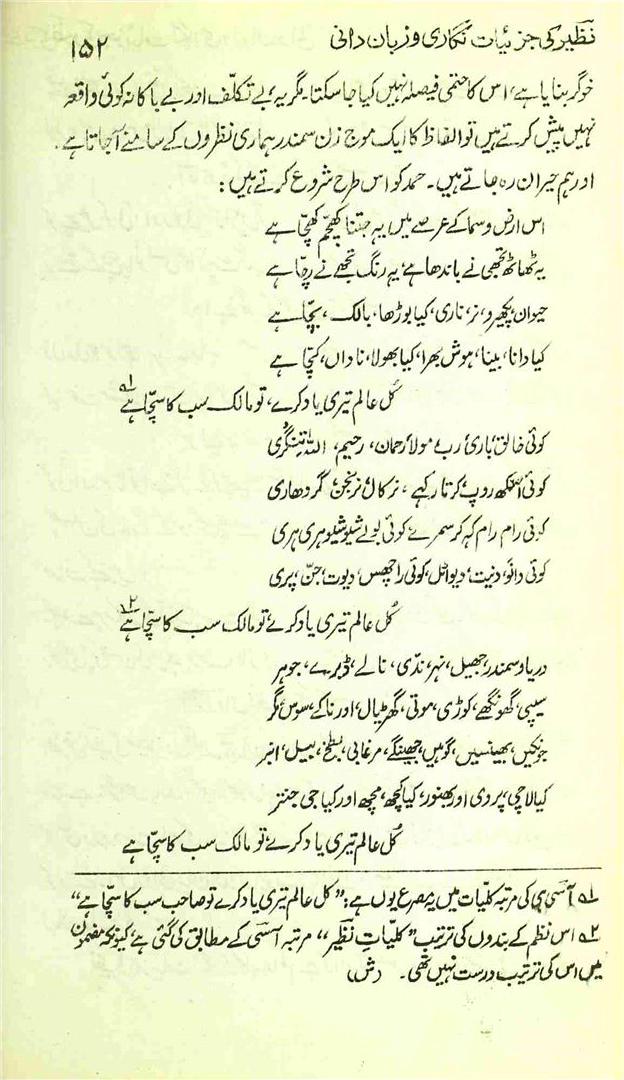 نظیر کی جزئیات نگاری و زبان دانی
۱۵۲
خوگر بنایا ہے، اس کا حتمی فیصلہ نہیں کیا جا سکتا۔ مگر یہ، بے تکلف اور بے باکانہ کوئی واقعہ
نہیں پیش کرتے ہیں تو الفاظ کا ایک موج زن سمندر ہماری نظروں کے سامنے آجاتا ہے۔
اور ہم حیران رہ جاتے ہیں۔ حمد کو اس طرح شروع کرتے ہیں:
اس ارض و سما کے عرصے میں یہ جتنا کھچم کھچا ہے
یہ ٹھاٹھ تجھی نے باندھا ہے، یہ رنگ تجھے نے رچا ہے
حیوان، پکھیرو، نر، ناری، کیا بوڑھا، بالک، بچا ہے
کیا دانا، بینا، ہوش بھرا، کیا بھولا، ناداں، کچا ہے
کل عالم تیری یاد کرے، تو مالک سب کا سچا ہے ۱؎
کوئی خالق، باری، رب، مولا، رحمان، رحیم، اللہ، تینگری
کوئی الکھ روپ، کرتا رکہے، نرکال، نرنجن، گردھاری
کوئی رام رام کہہ کر سمرے، کوئی بولے شیو شیو، ہری ہری
کوئی دانو، دنیت، دیو اٹل، کوئی راچھس، دیوت، جن، پری
کل عالم تیری یاد کرے، تو مالک سب کا سچا ہے ۲؎
دریا و سمندر، جھیل، نہر، ندی، نالے، ڈبرے، جوہر
سیپی، گھونگھے، کوڑی، موتی، گھڑیال، اور ناکے، سوس، مگر
جونکیں، بھینسیں، گوہیں، جھینگے، مرغابی، بطخ، بیل، انبر
کیا لاچی، پروی اور بھنور، کیا کچھ، مچھ اور کیا جی جنتر
کل عالم تیری یاد کرے، تو مالک سب کا سچا ہے
۱؎ آسی ہی کی مرتبہ کلیات میں یہ مصرع یوں ہے: "کل عالم تیری یاد کرے تو صاحب سب کا سچا ہے"
۲؎ اس نظم کے بندوں کی ترتیب "کلیاتِ نظیر" مرتبہ آسی کے مطابق کی گئی ہے، کیونکہ مضمون
میں اس کی ترتیب درست نہیں تھی۔ (ش)